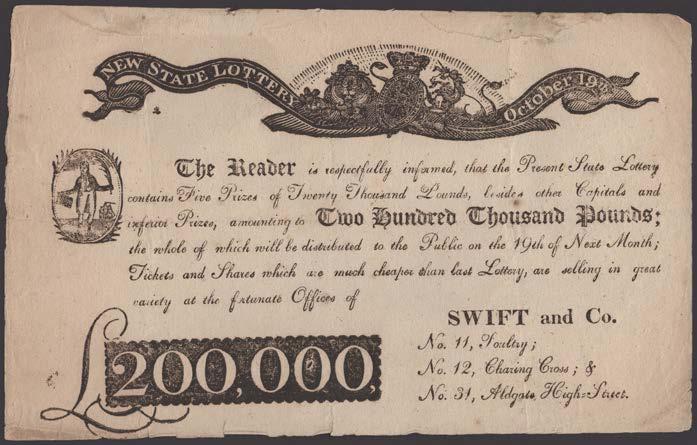 NEW STATE LOTTERY October 19th
The Reader is respectfully informed, that the Present State Lottery
contains Five Prizes of Twenty Thousand Pounds, besides other Capitals and
inferior Prizes, amounting to Two Hundred Thousand Pounds;
the whole of which will be distributed to the Public on the 19th of Next Month;
Tickets and Shares which are much cheaper than last Lottery, are selling in great
variety at the fortunate Offices of
SWIFT and Co.
No. 11, Poultry;
No. 12, Charing Cross; &
No. 31, Aldgate High=Street.
£200,000,